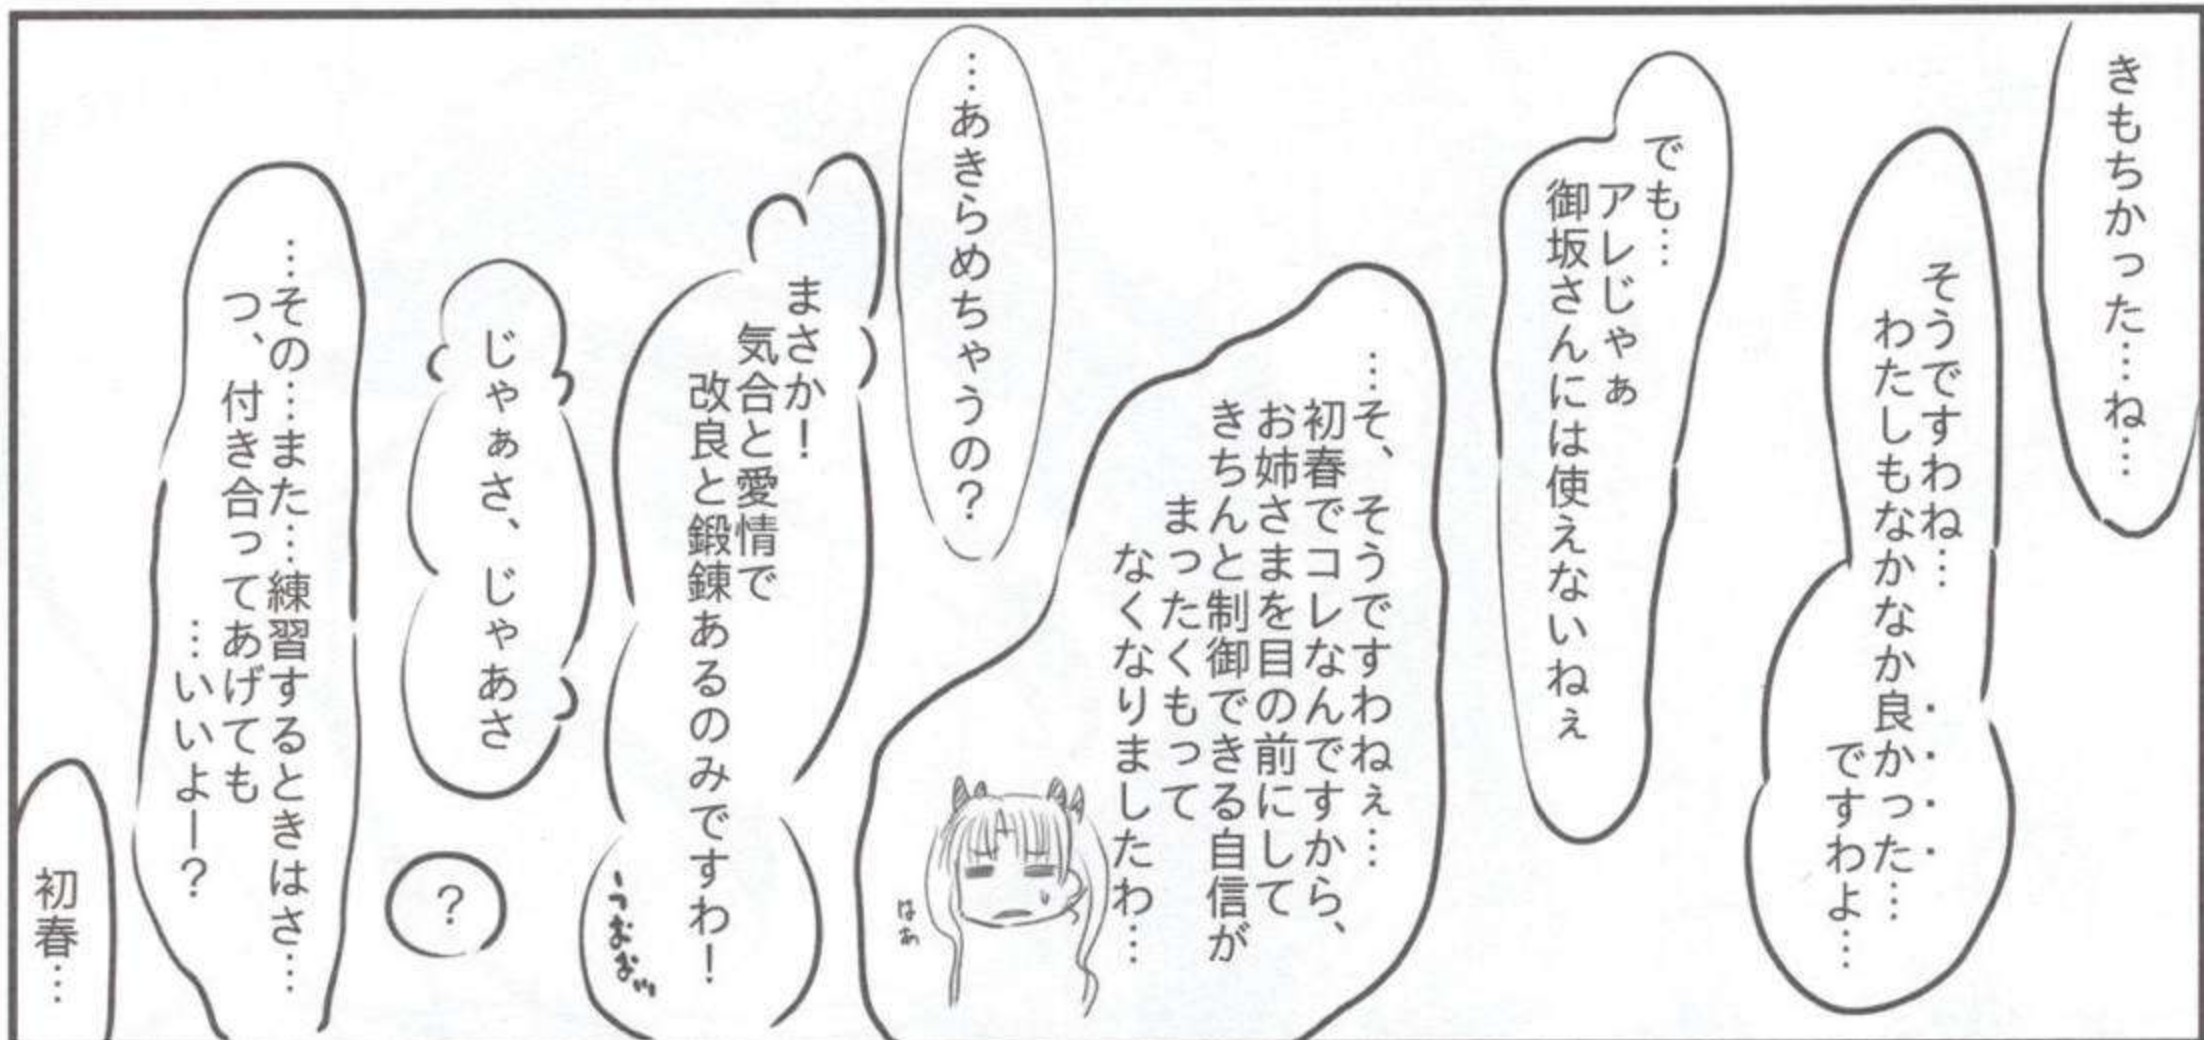 きもちかった…ね…
そうですわね…
わたしもなかなか良かった…
ですわよ…
でも…
アレじゃぁ
御坂さんには使えないねぇ
…そ、そうですわねぇ…
初春でコレなんですから、
お姉さまを目の前にして
きちんと制御できる自信が
まったくもって
なくなりましたわ…
はぁ
…あきらめちゃうの?
まさか!
気合と愛情で
改良と鍛錬あるのみですわ!
うおお
じゃぁさ、じゃあさ
?
…その…また…練習するときはさ…
つ、付き合ってあげても
…いいよー?
初春…